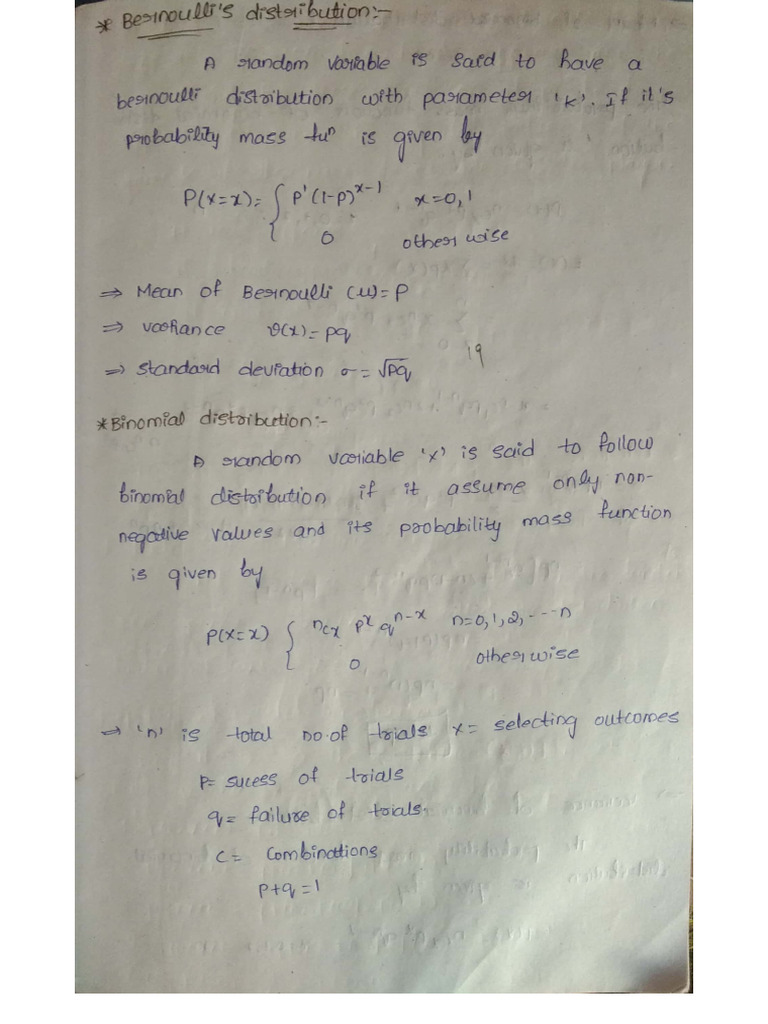 * Bernoulli's distribution:-
A random variable is said to have a
bernoulli distribution with parameter 'K'. If it's
probability mass fuⁿ is given by
P(x=x)= { p'(1-p)^{x-1} x=0,1
0 otherwise
⇒ Mean of Bernoulli (μ)=P
⇒ variance ϑ(x)=pq
19
⇒ standard deviation σ=√pq
*Binomial distribution:-
A random variable 'x' is said to follow
binomial distribution if it assume only non-
negative values and its probability mass function
is given by
P(x=x) { ⁿcx p^x q^{n-x} n=0,1,2,---n
0 otherwise
→ 'n' is total no.of trials x= selecting outcomes
P= sucess of trials
q= failure of trials.
C= Combinations
P+q=1